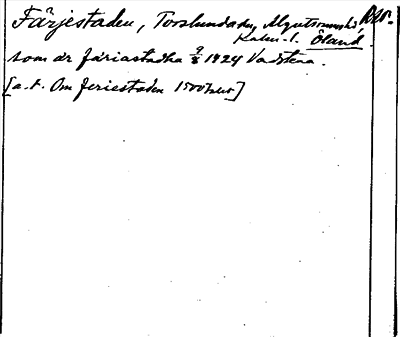 Färjestaden, Torslundasn, Algutsrumshd,
Kalm. l. Öland.
som är färiastadha 9/8 1424 Vadstena.
[a. t. Om feriestaden 1500talet]